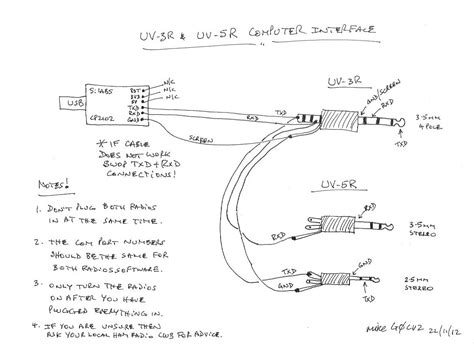 UV-3R & UV-5R COMPUTER INTERFACE
UV-3R
USB
SILABS
CP2102
RST
3V3
5V
TXD
RXD
GND
N/C
N/C
N/C
RXD
TXD
SCREEN
GND/SCREEN
RXD
TXD
3.5mm
4 POLE
* IF CABLE
DOES NOT WORK
SWOP TXD + RXD
CONNECTIONS!
UV-5R
RXD
RXD
3.5mm
STEREO
TXD
GND
GND
TXD
2.5mm
STEREO
NOTES!
1. DON'T PLUG BOTH RADIOS
IN AT THE SAME TIME.
2. THE COM PORT NUMBERS
SHOULD BE THE SAME FOR
BOTH RADIOS SOFTWARE.
3. ONLY TURN THE RADIOS
ON AFTER YOU HAVE
PLUGGED EVERYTHING IN.
4. IF YOU ARE UNSURE THEN
ASK YOUR LOCAL HAM RADIO CLUB FOR ADVICE.
MIKE
22/11/12